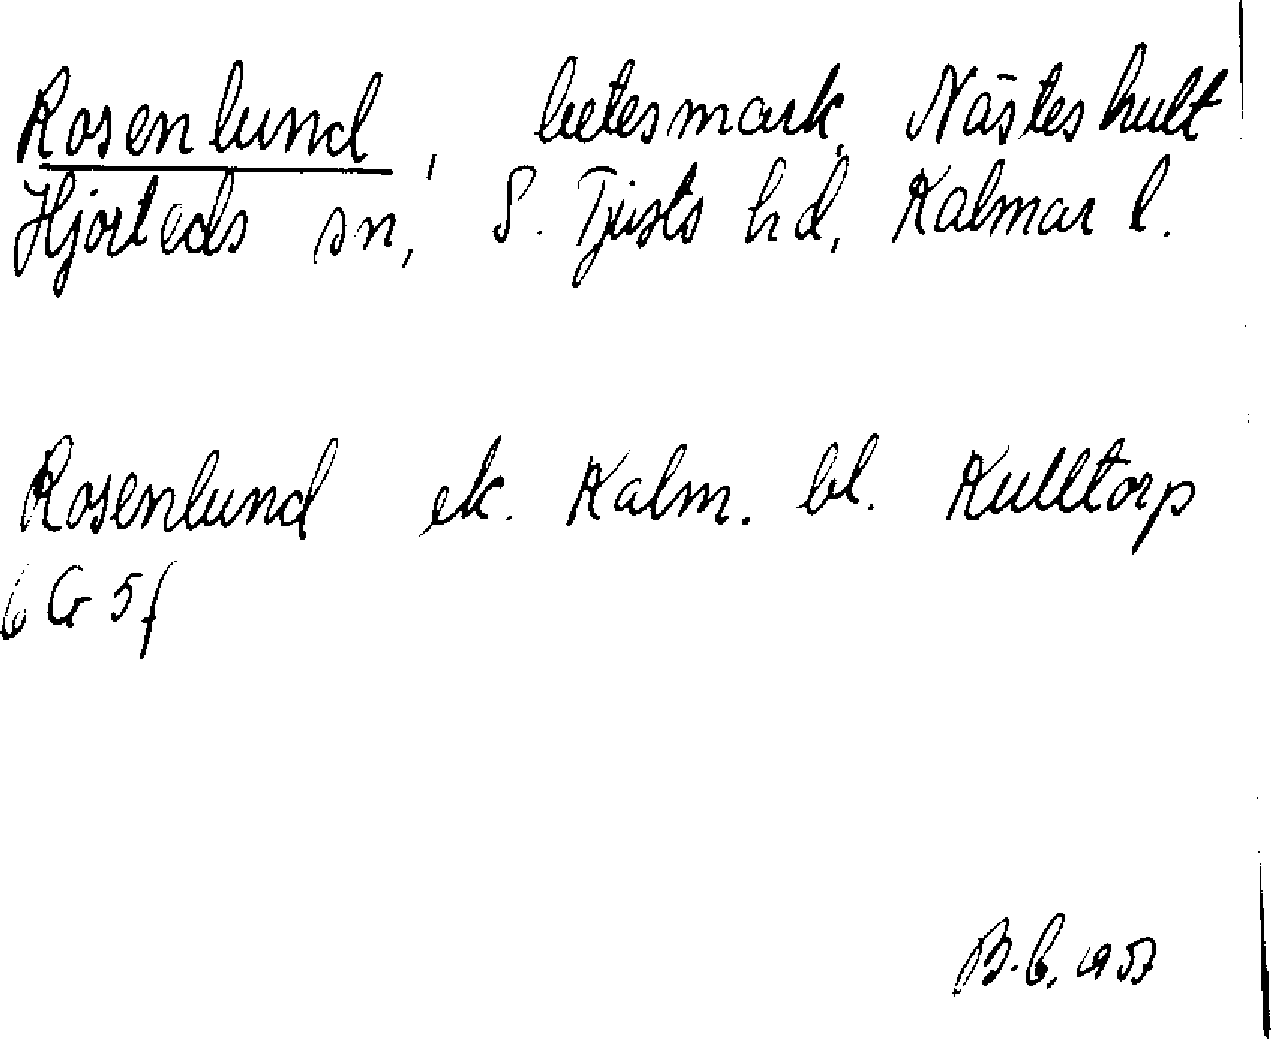 Rosenlund, betesmark, Nästeshult
Hjorteds sn, S. Tjusts hd, Kalmar l.
Rosenlund ek. Kalm. bl. Kulltorp
6 G 5f